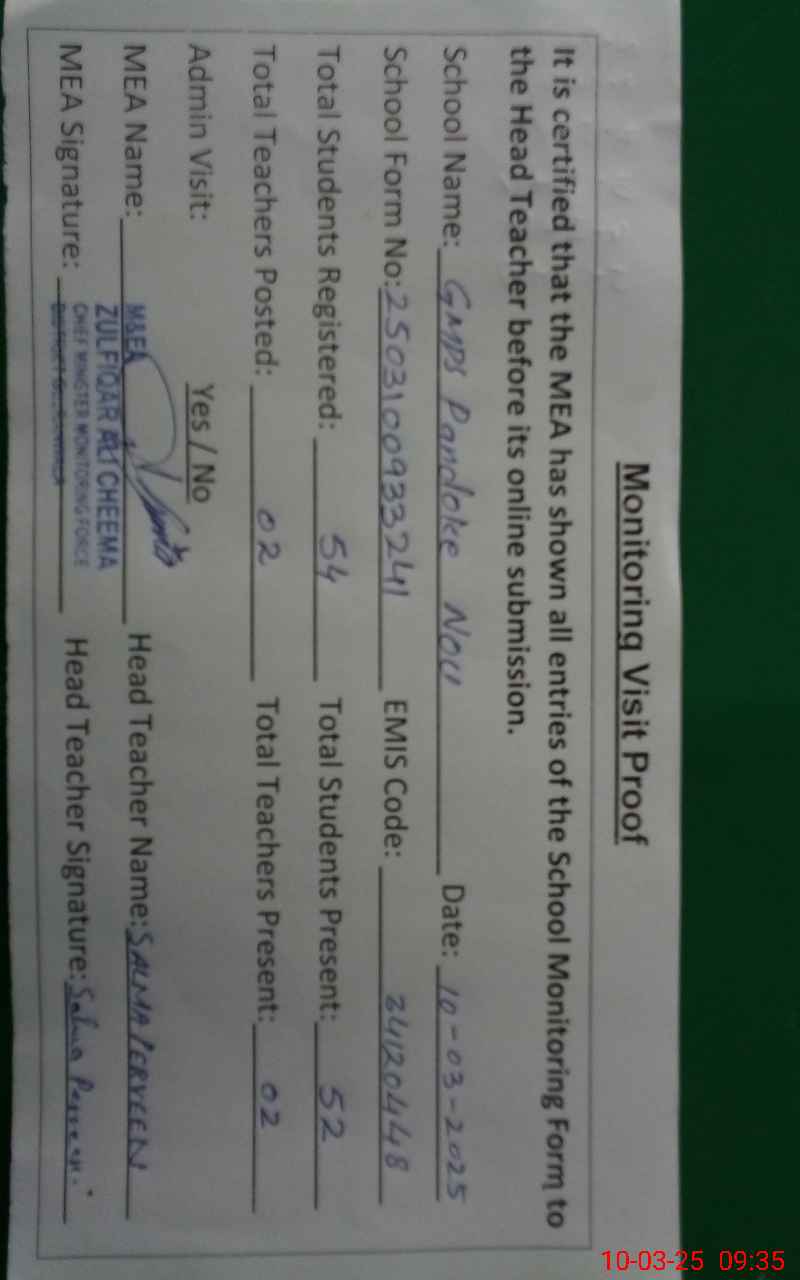 Monitoring Visit Proof
It is certified that the MEA has shown all entries of the School Monitoring Form to
the Head Teacher before its online submission.
School Name: GMPS Pandoke Nou Date: 10-03-2025
School Form No: 2503100933241 EMIS Code: 34120448
Total Students Registered: 54 Total Students Present: 52
Total Teachers Posted: 02 Total Teachers Present: 02
Admin Visit: Yes / No
MEA Name: Head Teacher Name: SALMA PERVEEN
M&EA
ZULFIQAR ALI CHEEMA
CHIEF MINISTER MONITORING FORCE
MEA Signature: Head Teacher Signature: Salma Perveen.
10-03-25 09:35